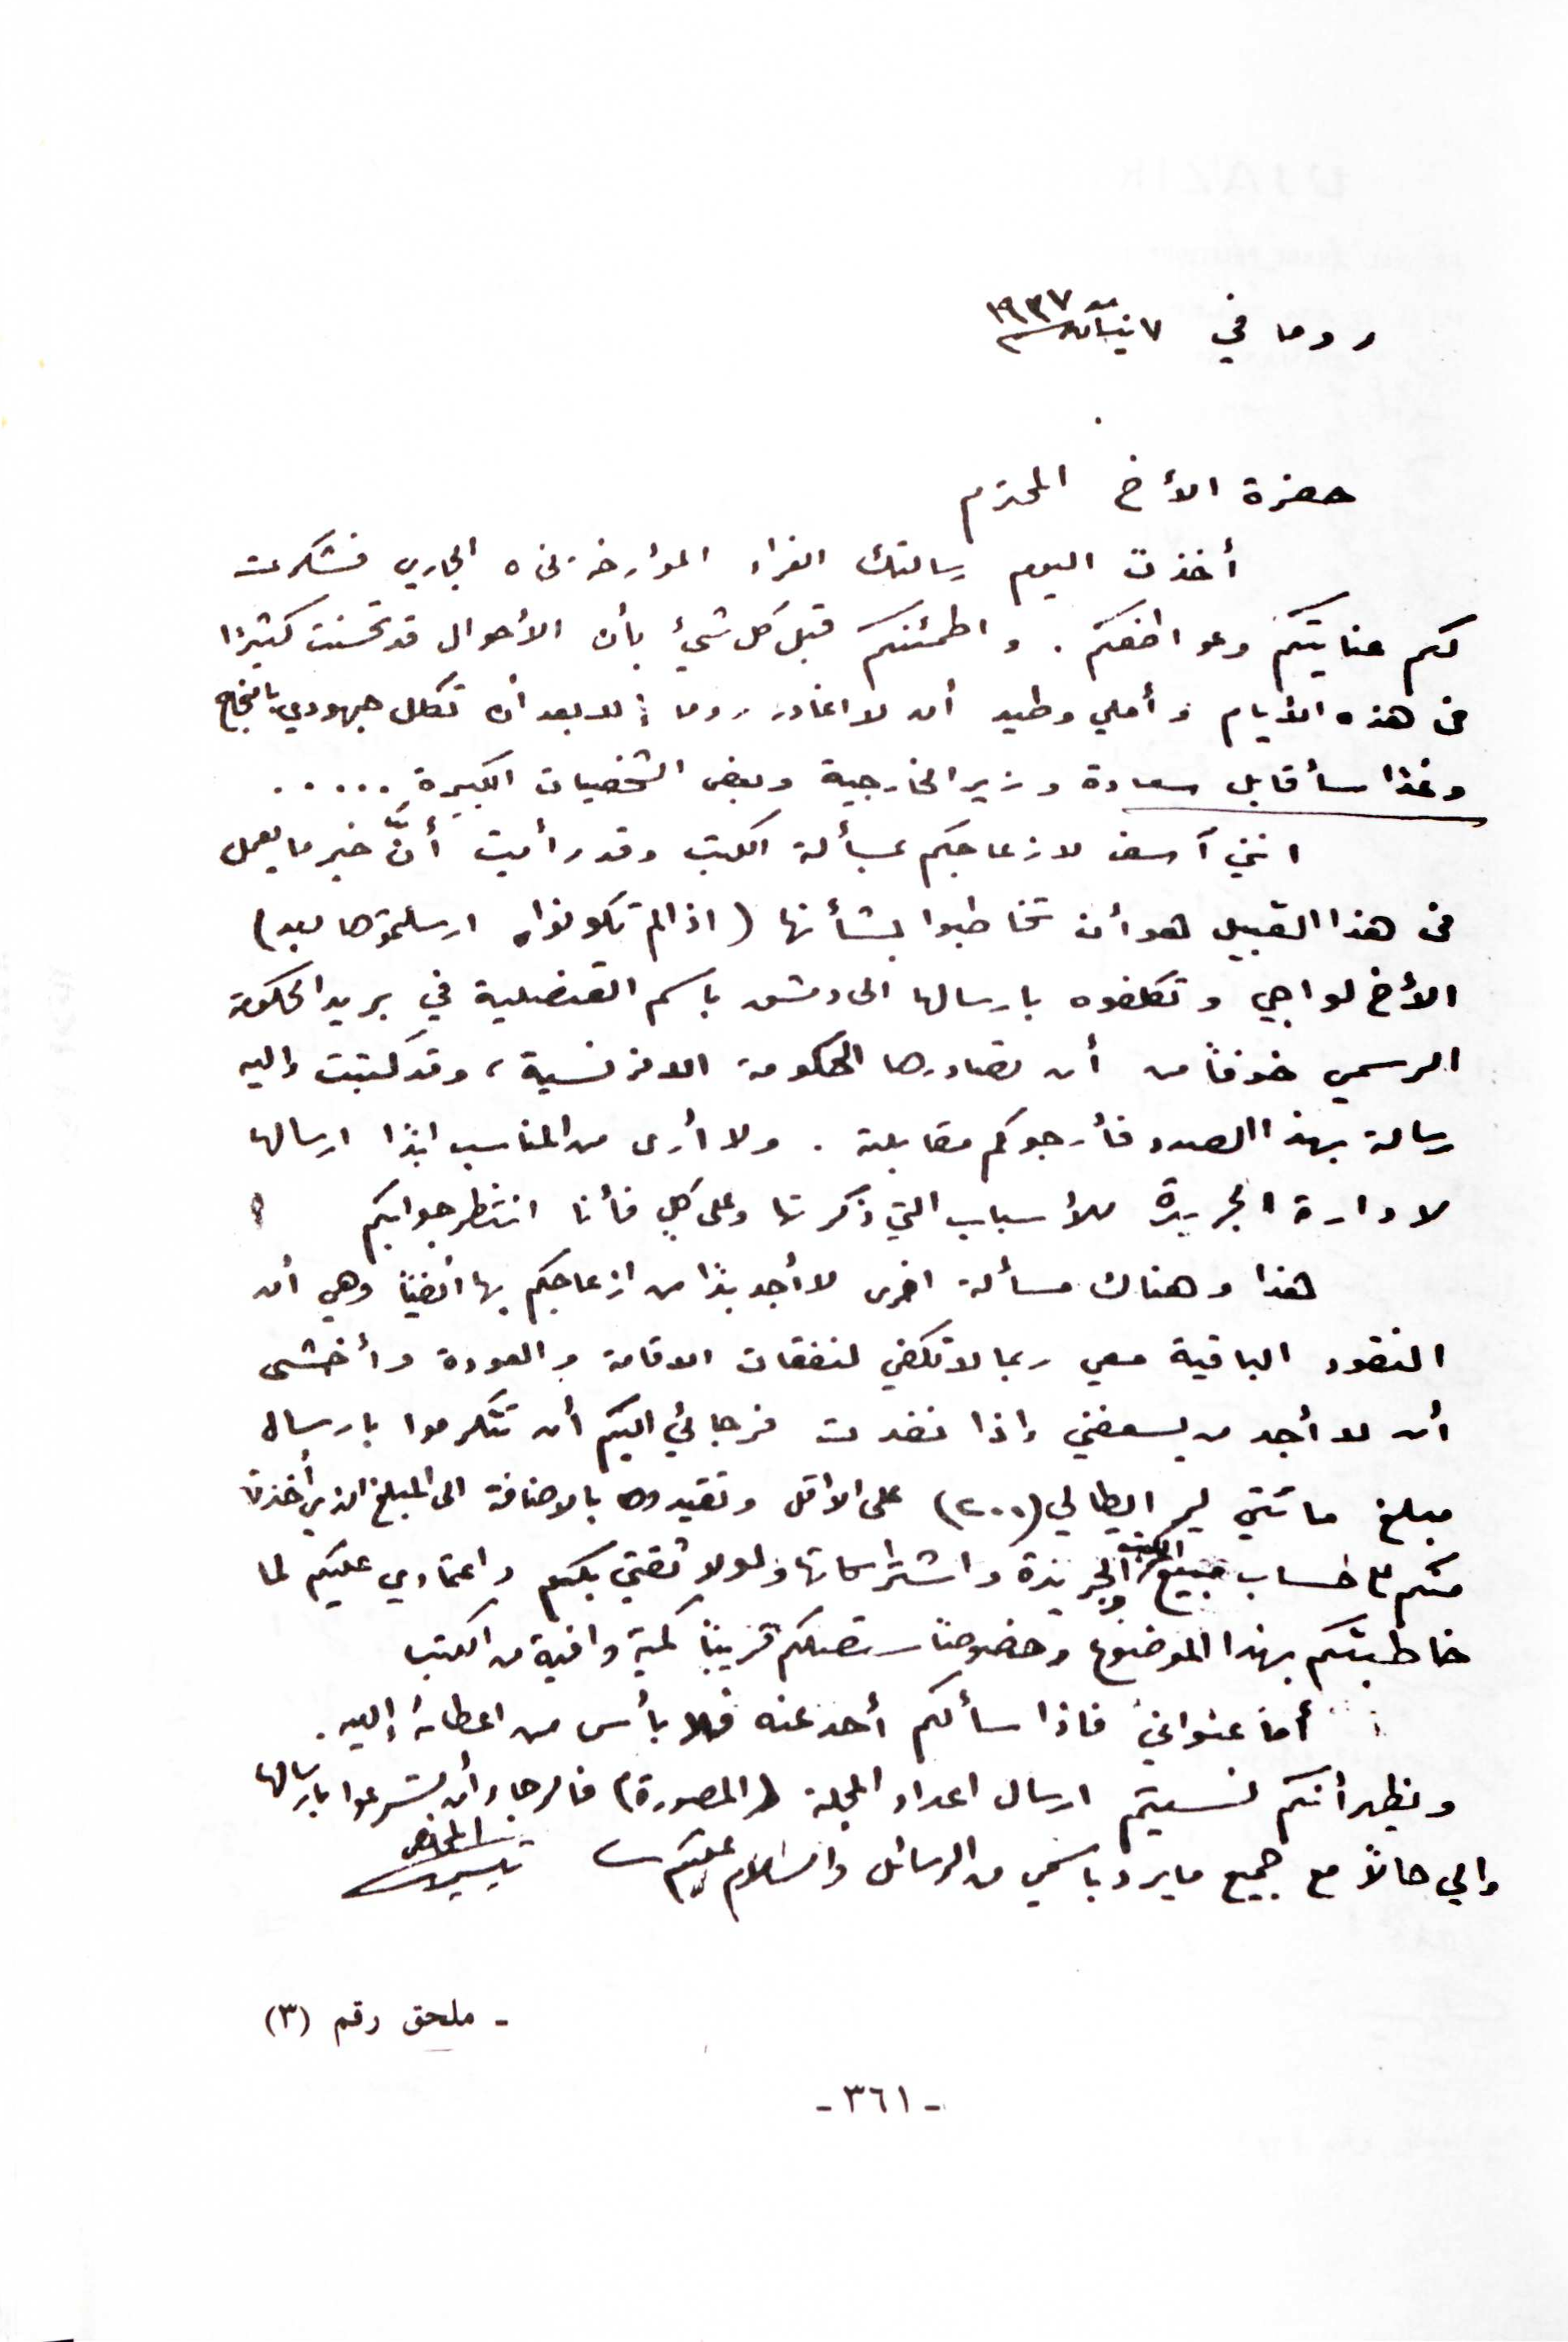 روما في ٧ نيسان ١٩٣٧
حضرة الأخ المحترم
أخذت اليوم رسالتك الغراء المؤرخة في ٥ الجاري فشكرت
لكم عنايتكم وعواطفكم . واطمئنكم قبل كل شيء بأن الأحوال قد تحسنت كثيرًا
في هذه الأيام وأملي وطيد أن لا اغادر روما إلا بعد أن تكلل جهودي بالنجاح
وغدًا سأقابل سعادة وزير الخارجية وبعض الشخصيات الكبيرة .....
انني آسف لازعاجكم بمسألة الكتب وقد رأيت أنّ خير ما يعمل
في هذا القبيل هو أن تخاطبوا بشأنها (اذا لم تكونوا ارسلتموها بعد)
الأخ لواجي وتكلفوه بارسالها الى دمشق باسم القنصلية في بريد الحكومة
الرسمي خوفاً من أن تصادرها الحكومة الافرنسية ، وقد كتبت إليه
رسالة بهذا الصدد فأرجوكم مقابلته . ولا أرى من المناسب ابدًا ارسالها
لادارة الجريدة للأسباب التي ذكرتها وعلى كلٍ فأنا انتظر جوابكم
هذا وهناك مسألة اخرى لا أجد بدًا من ازعاجكم بها أيضاً وهي أن
النقود الباقية معي ربما لا تكفي لنفقات الاقامة والعودة وأخشى
أن لا أجد من يسعفني إذا نفدت فرجائي اليكم أن تتكرموا بارسال
مبلغ مائتي لير ايطالي (٢٠٠) على الاقل وتقيدوها بالاضافة الى المبلغ الذي أخذته
منكم على حساب مبيع الكتب والجريدة واشتراكاتها ولولا ثقتي بكم واعتمادي عليكم لما
خاطبتكم بهذا الموضوع وخصوصاً ستصلكم قريباً كمية وافية من الكتب
أما عنواني فاذا سألكم أحد عنه فلا بأس من اعطائه إليه .
ويظهر أنكم نسيتم ارسال اعداد المجلة (المصورة) فالرجاء أن تسرعوا بارسالها
إلي حالاً مع جميع ما يرد باسمي من الرسائل والسلام عليكم
المخلص
- ملحق رقم (٣)
- ٣٦١ -